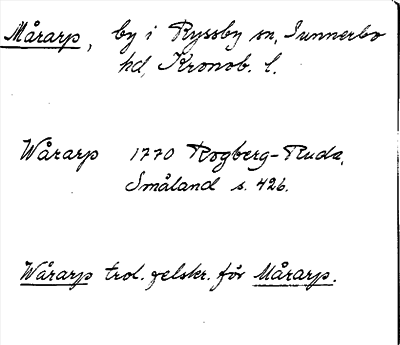 Mårarp, by i Ryssby sn, Sunnerbo
hd, Kronob. l.
Wårarp 1770 Rogberg-Ruda,
Småland s. 426.
Wårarp trol. felskr. för Mårarp.